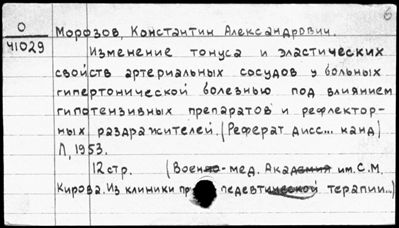 О
41029
Морозов, Константин Александрович.
Изменение тонуса и эластических
свойств артериальных сосудов у больных
гипертонической болезнью под влиянием
гипотензивных препаратов и рефлектор-
ных раздражителей. (Реферат дисс... канд)
Л, 1953.
12 стр. (Военно-мед. Академия им. С.М.
Кирова. Из клиники педевтической терапии...)